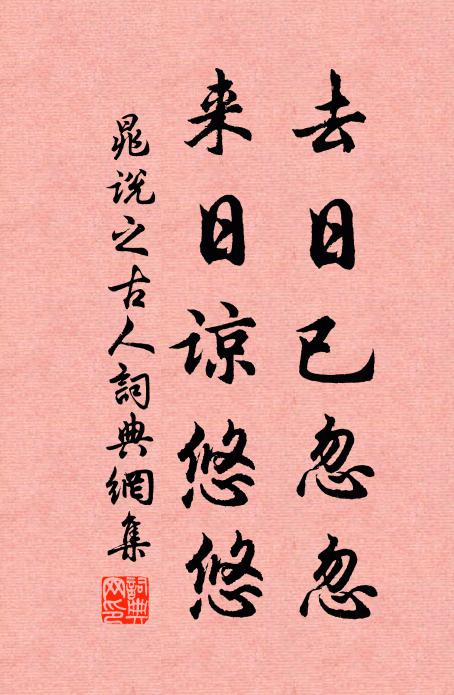 去日已忽忽
来日谅悠悠
晁说之古人詞典網集
詞典
网印